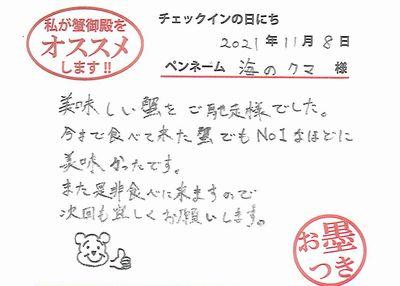 私が蟹御殿を
オススメ
します!!
チェックインの日にち
2021年11月8日
ペンネーム 海のクマ 様
美味しい蟹をご馳走様でした。
今まで食べて来た蟹でもNo1なほどに
美味かったです。
また是非食べに来ますので
次回も宜しくお願いします。
お墨
つき